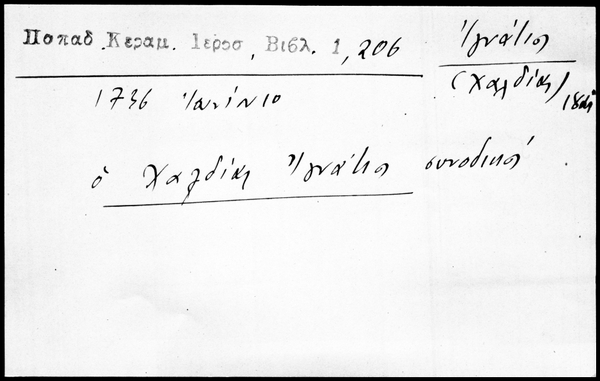 Παπαδ. Κεραμ. Ιεροσ, Βιβλ. 1, 206
Ἰγνάτιος
(Χαλδίας) 18ος
1736 Ἰουνίου
ὁ Χαλδίας Ἰγνάτιος συνοδικός